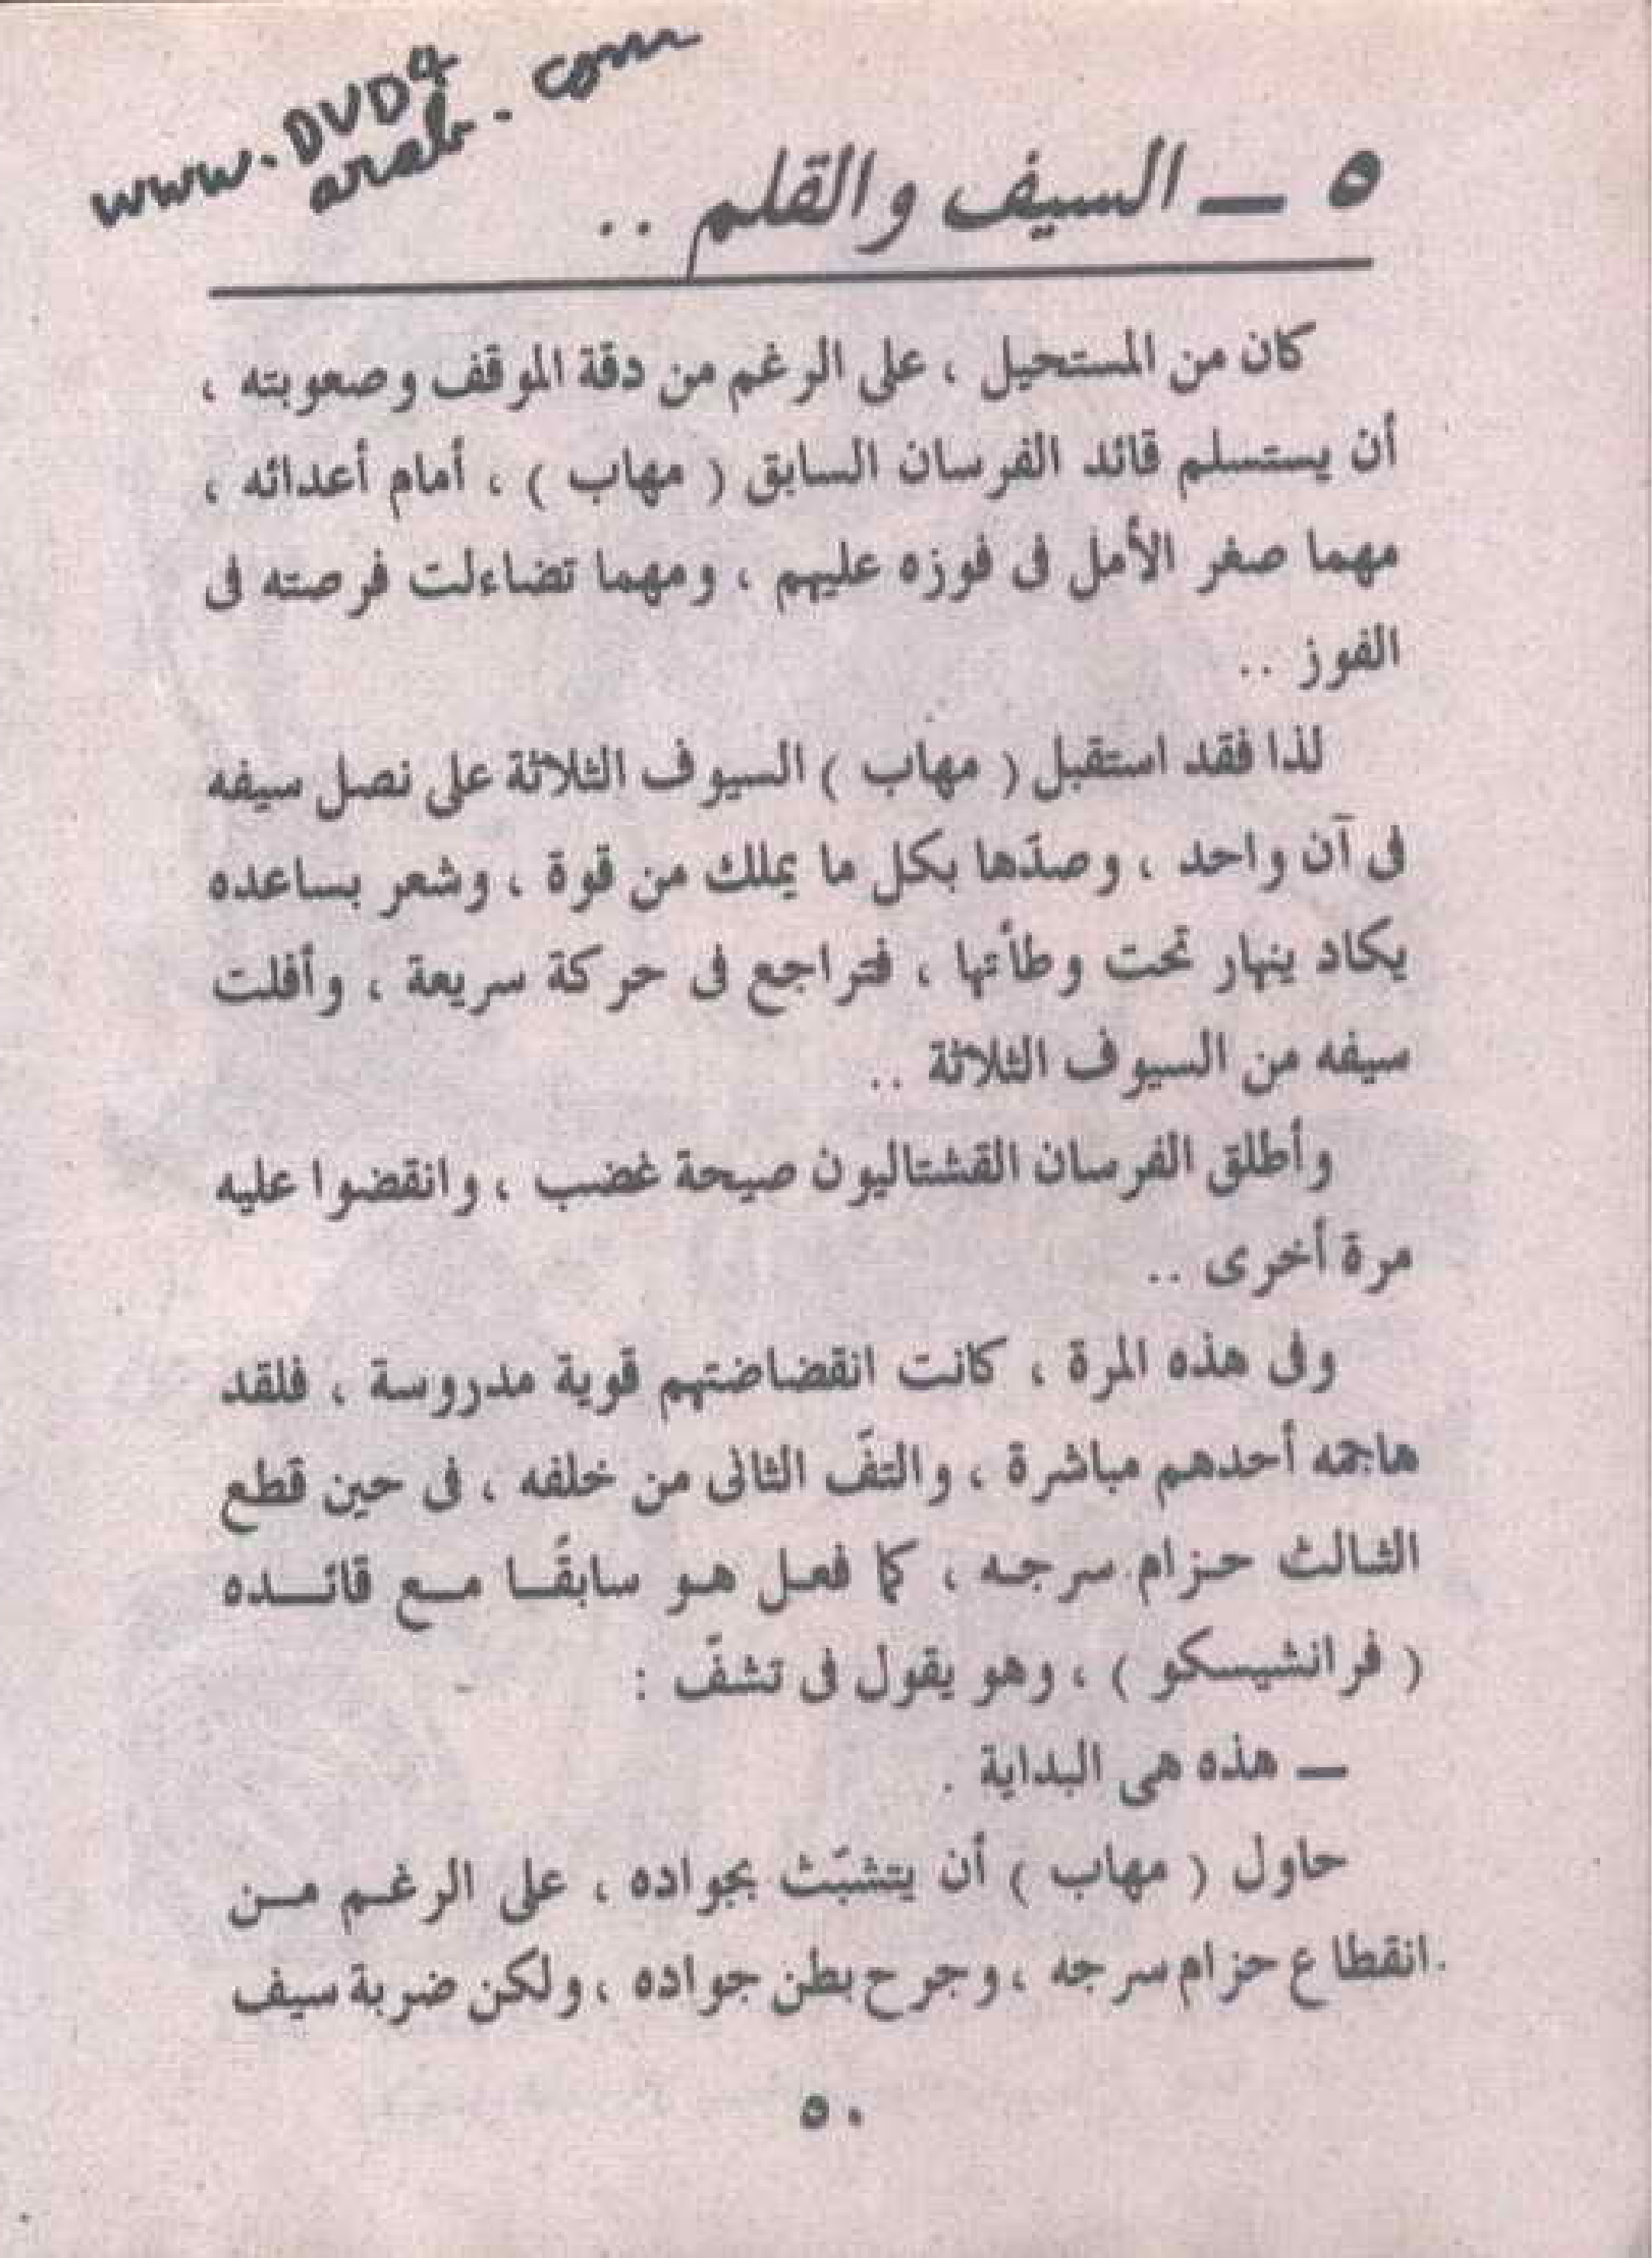 www.DVD4
arab.com
٥ ــ السيف والقلم ..
كان من المستحيل ، على الرغم من دقة الموقف وصعوبته ،
أن يستسلم قائد الفرسان السابق ( مهاب ) ، أمام أعدائه ،
مهما صغر الأمل فى فوزه عليهم ، ومهما تضاءلت فرصته فى
الفوز ..
لذا فقد استقبل ( مهاب ) السيوف الثلاثة على نصل سيفه
فى آن واحد ، وصدّها بكل ما يملك من قوة ، وشعر بساعده
يكاد ينهار تحت وطأتها ، فتراجع فى حركة سريعة ، وأفلت
سيفه من السيوف الثلاثة ..
وأطلق الفرسان القشتاليون صيحة غضب ، وانقضوا عليه
مرة أخرى ..
وفى هذه المرة ، كانت انقضاضتهم قوية مدروسة ، فلقد
هاجمه أحدهم مباشرة ، والتفّ الثانى من خلفه ، فى حين قطع
الثالث حزام سرجه ، كما فعل هو سابقًا مع قائده
( فرانشيسكو ) ، وهو يقول فى تشفّ :
ــ هذه هى البداية .
حاول ( مهاب ) أن يتشبّث بجواده ، على الرغم من
انقطاع حزام سرجه ، وجرح بطن جواده ، ولكن ضربة سيف
٥٠